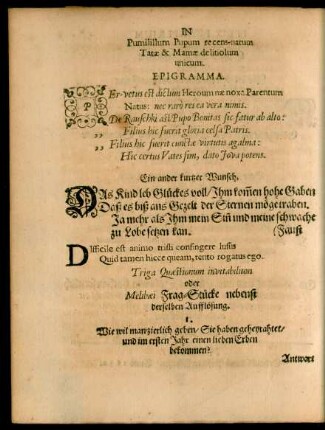 IN
Pumilillum Pupum recens-natum
Tatæ & Mamæ delitiolum
unicum.
EPIGRAMMA.
PEr-vetus est dictum Heroum noxa Parentum
Natus: nec rarò res ea vera nimis.
De Rauschki ast Pupo Bonitas sic fatur ab alto:
,, Filius hic fuerit gloria celsa Patris.
,, Filius hic fuerit cunctæ virtutis agalma:
Hic certus Vates sim, dato Jova potens.
Ein ander kurtzer Wunsch.
DAs Kind leb Glückes voll / Ihm kom̃en hohe Gaben
Daß es biß ans Gezelt der Sternen mög
Ja mehr als Ihm mein Sin̄ und meine schwache
zu Lobe setzen kan. (Faust
DIfficile est animo tristi confingere lusus
Quid tamen hicce queam, tento rogatus ego.
Triga Quæstionum
oder
Melibæi Frag-Stücke nebenst
derselben Aufflösung.
1.
Wie wil manzierlich geben / Sie haben geheyrahtet /
und im ersten Jahr einen lieben Erben
bekommen?
Antwort